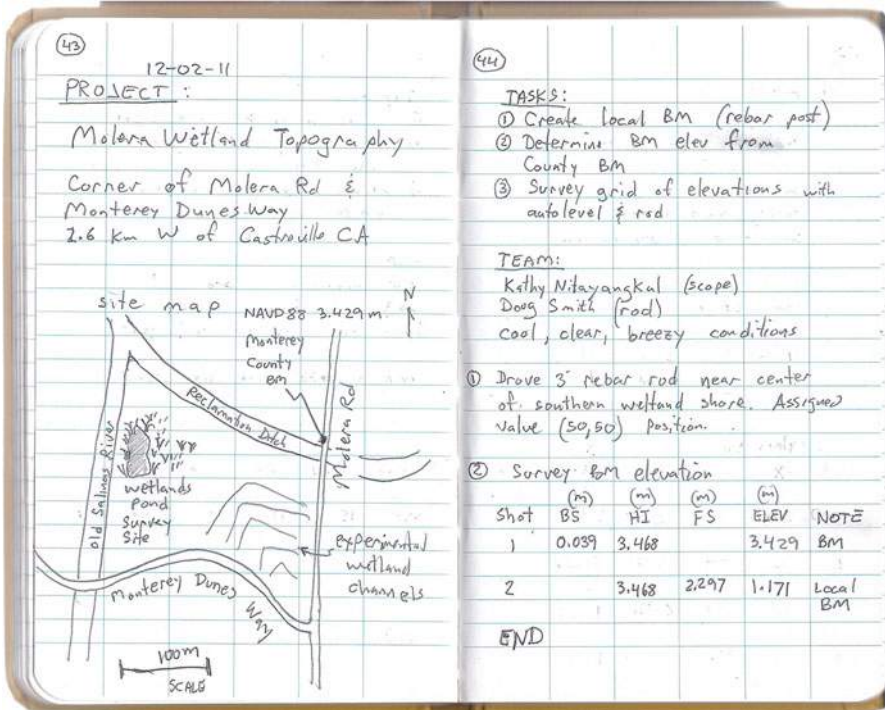 43
12-02-11
PROJECT:
Molera Wetland Topography
Corner of Molera Rd &
Monterey Dunes Way
2.6 km W of Castroville CA
site map
NAVD88 3.429 m
N
Monterey
County
BM
Reclamation Ditch
Molera Rd
Old Salinas River
wetlands
Pond
Survey
Site
experimental
wetland
channels
Monterey Dunes Way
100m
SCALE
44
TASKS:
① Create local BM (rebar post)
② Determine BM elev from
County BM
③ Survey grid of elevations with
autolevel & rod
TEAM:
Kathy Nitayangkul (scope)
Doug Smith (rod)
cool, clear, breezy conditions
① Drove 3' rebar rod near center
of southern wetland shore. Assigned
value (50,50) position.
② Survey BM elevation
(m) (m) (m) (m)
Shot BS HI FS ELEV NOTE
1 0.039 3.468 3.429 BM
2 3.468 2.297 1.171 Local
BM
END